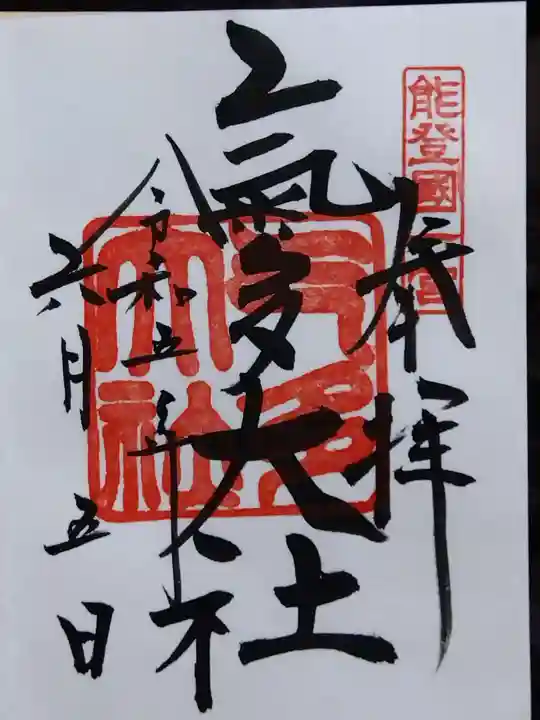 能登國一宮
奉拝
氣多大社
令和五年
六月五日
氣多大社